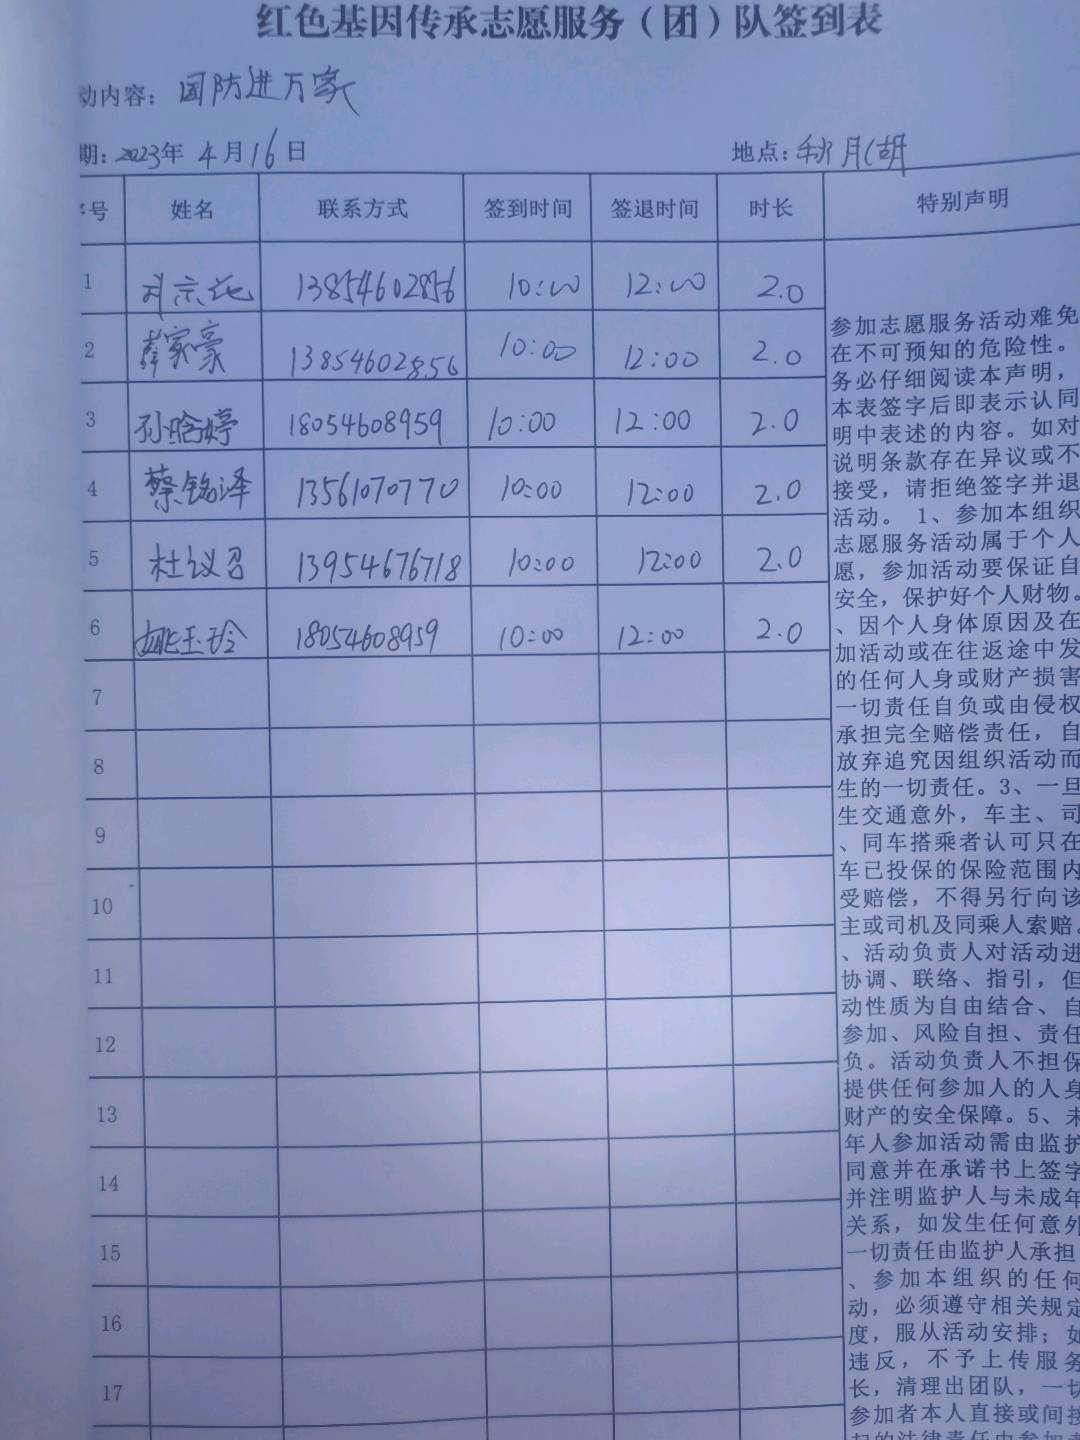 红色基因传承志愿服务（团）队签到表
动内容：国防进万家
期：2023年4月16日 地点：秋月湖
序号 姓名 联系方式 签到时间 签退时间 时长 特别声明
1 13854602856 10:00 12:00 2.0
2 薛家豪 13854602856 10:00 12:00 2.0
3 孙晗婷 18054608959 10:00 12:00 2.0
4 蔡铭泽 13561070770 10:00 12:00 2.0
5 杜议召 13954676718 10:00 12:00 2.0
6 姚玉玲 18054608959 10:00 12:00 2.0
7
8
9
10
11
12
13
14
15
16
17
参加志愿服务活动难免
在不可预知的危险性。
务必仔细阅读本声明，
本表签字后即表示认同
明中表述的内容。如对
说明条款存在异议或不
接受，请拒绝签字并退
活动。1、参加本组织
志愿服务活动属于个人
愿，参加活动要保证自
安全，保护好个人财物。
、因个人身体原因及在
加活动或在往返途中发
的任何人身或财产损害
一切责任自负或由侵权
承担完全赔偿责任，自
放弃追究因组织活动而
生的一切责任。3、一旦
生交通意外，车主、司
、同车搭乘者认可只在
车已投保的保险范围内
受赔偿，不得另行向该
主或司机及同乘人索赔。
、活动负责人对活动进
协调、联络、指引，但
动性质为自由结合、自
参加、风险自担、责任
负。活动负责人不担保
提供任何参加人的人身
财产的安全保障。5、未
年人参加活动需由监护
同意并在承诺书上签字
并注明监护人与未成年
关系，如发生任何意外
一切责任由监护人承担
、参加本组织的任何
动，必须遵守相关规定
度，服从活动安排；如
违反，不予上传服务
长，清理出团队，一切
参加者本人直接或间接
起的法律责任由参加者